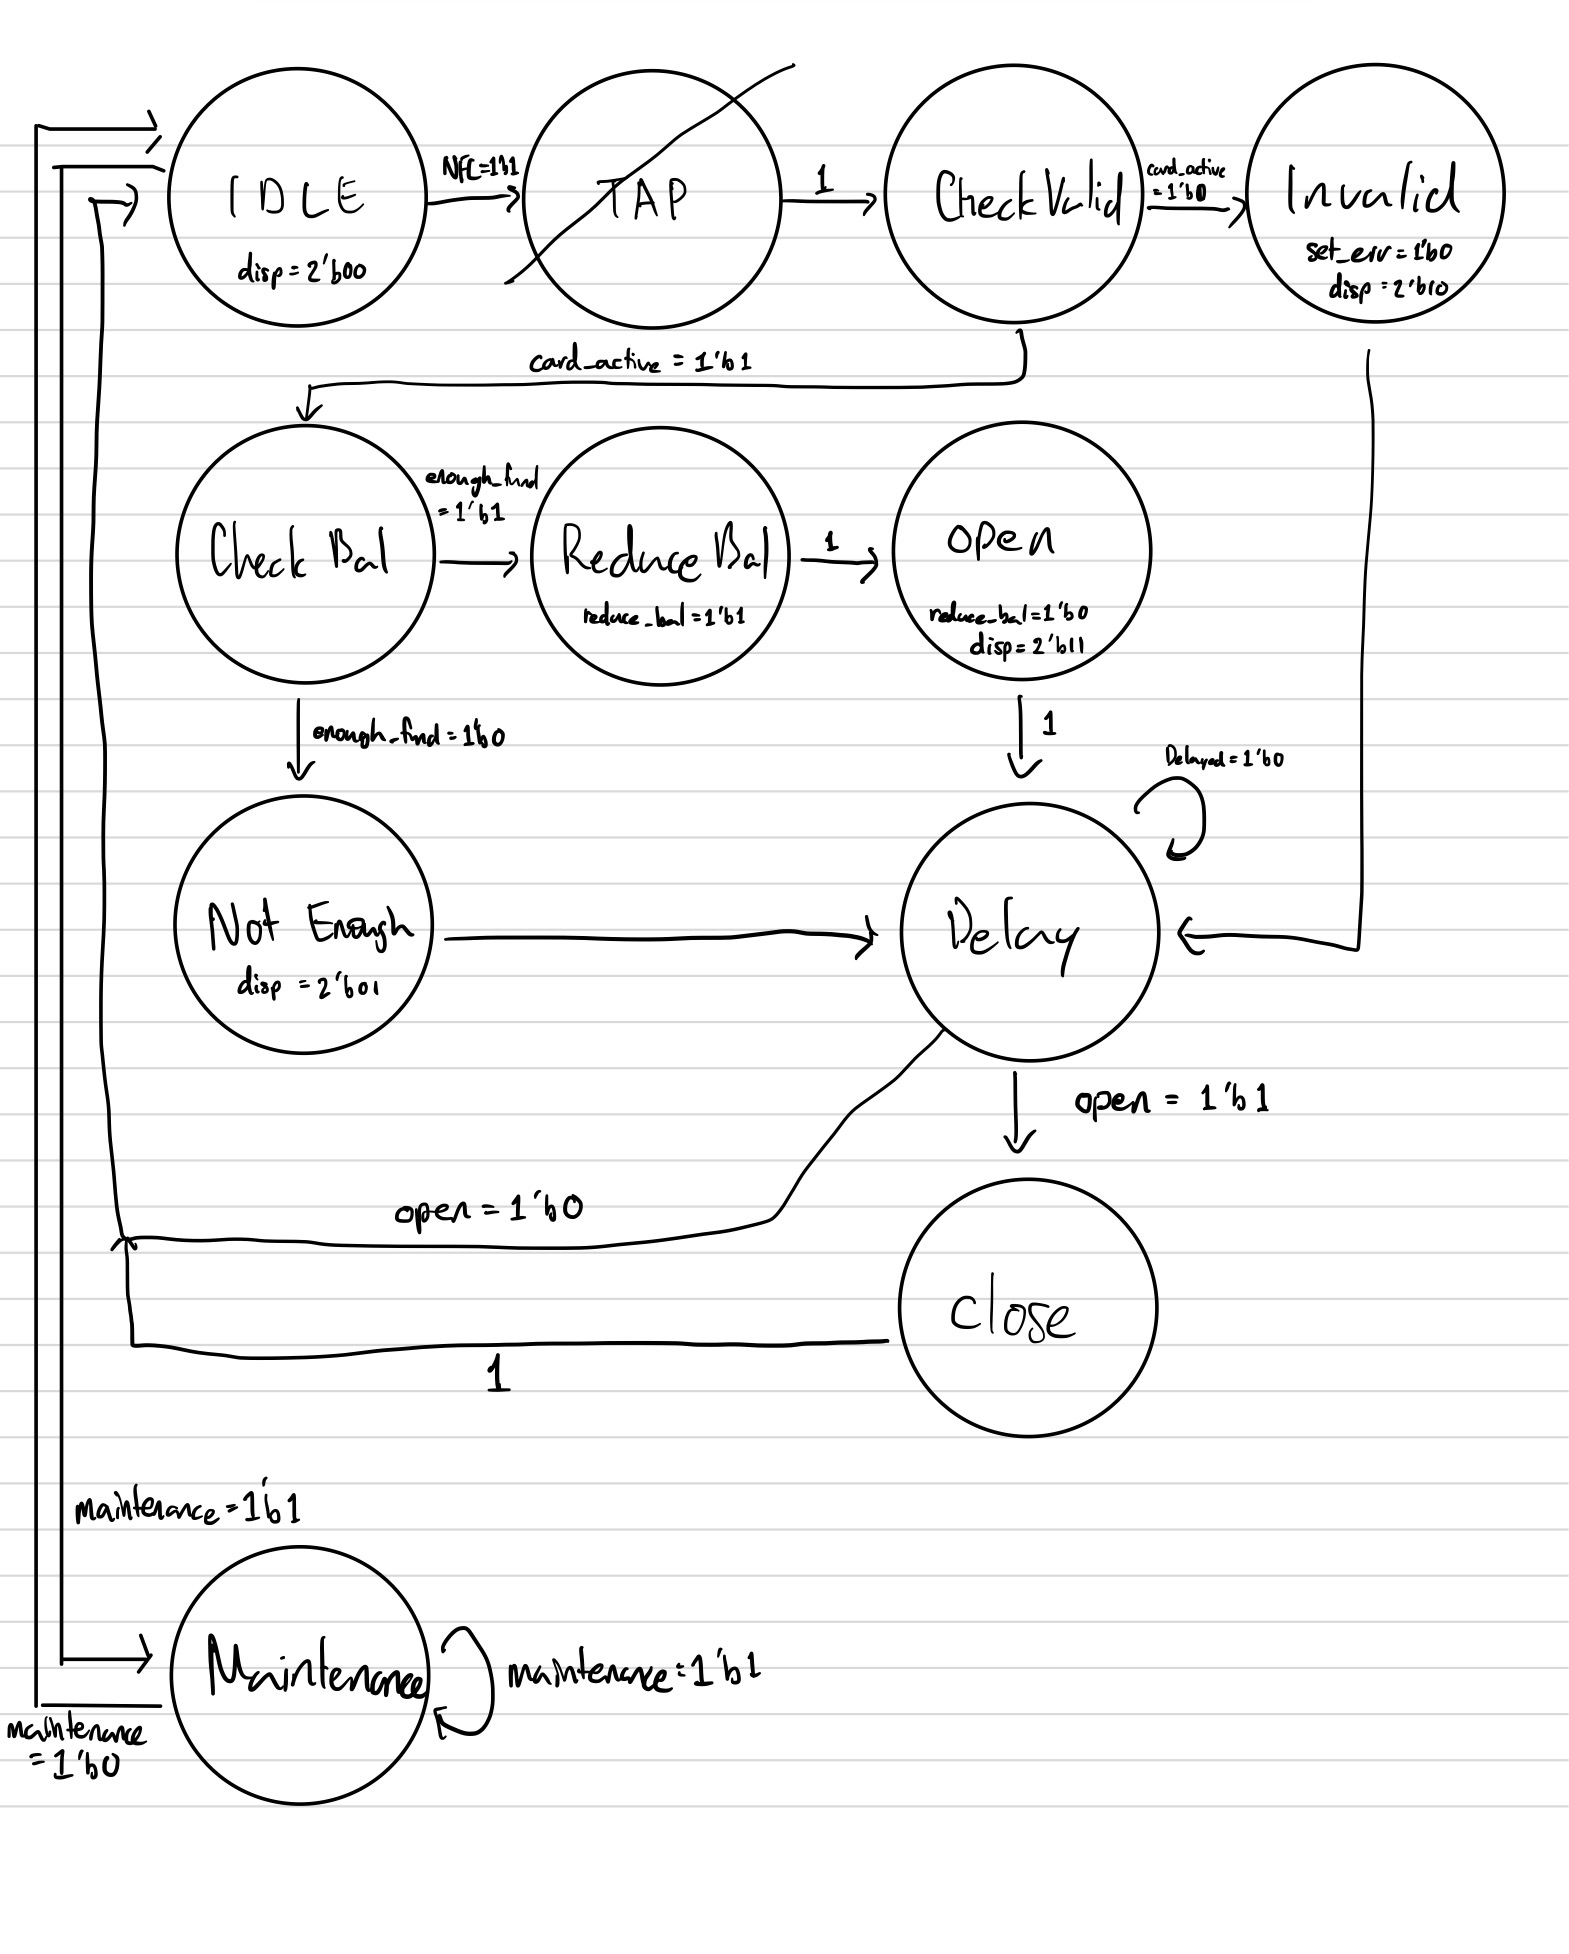 IDLE
disp = 2'b00
NFC=1'b1
TAP
1
Check Valid
card_active
= 1'b0
Invalid
set_err = 1'b0
disp = 2'b10
card_active = 1'b1
Check Bal
enough_fund
= 1'b1
Reduce Bal
reduce_bal = 1'b1
1
open
reduce_bal = 1'b0
disp = 2'b11
enough_fund = 1'b0
1
Delayed = 1'b0
Not Enough
disp = 2'b01
Delay
open = 1'b1
open = 1'b0
close
1
maintenance = 1'b1
Maintenance
maintenance = 1'b1
maintenance
= 1'b0